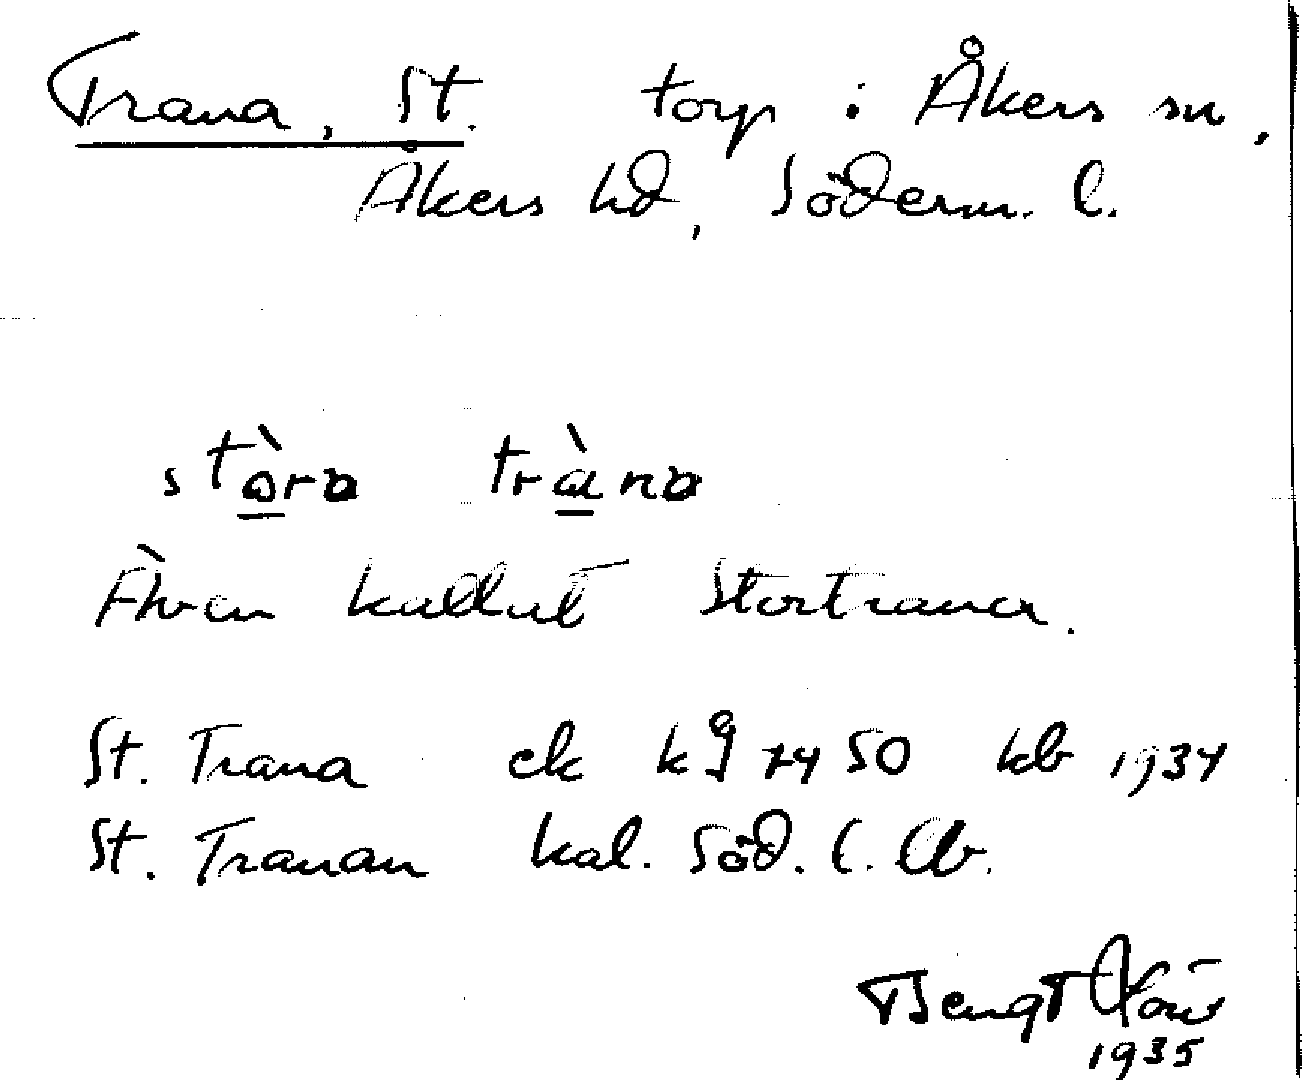 Trana, St. torp i Åkers sn,
Åkers hd, Söderm. l.
stòra tràna
Även kallat Stortrana.
St. Trana ek kg 7450 kb 1934
St. Tranan kal. Söd. l.
Bengt
1935